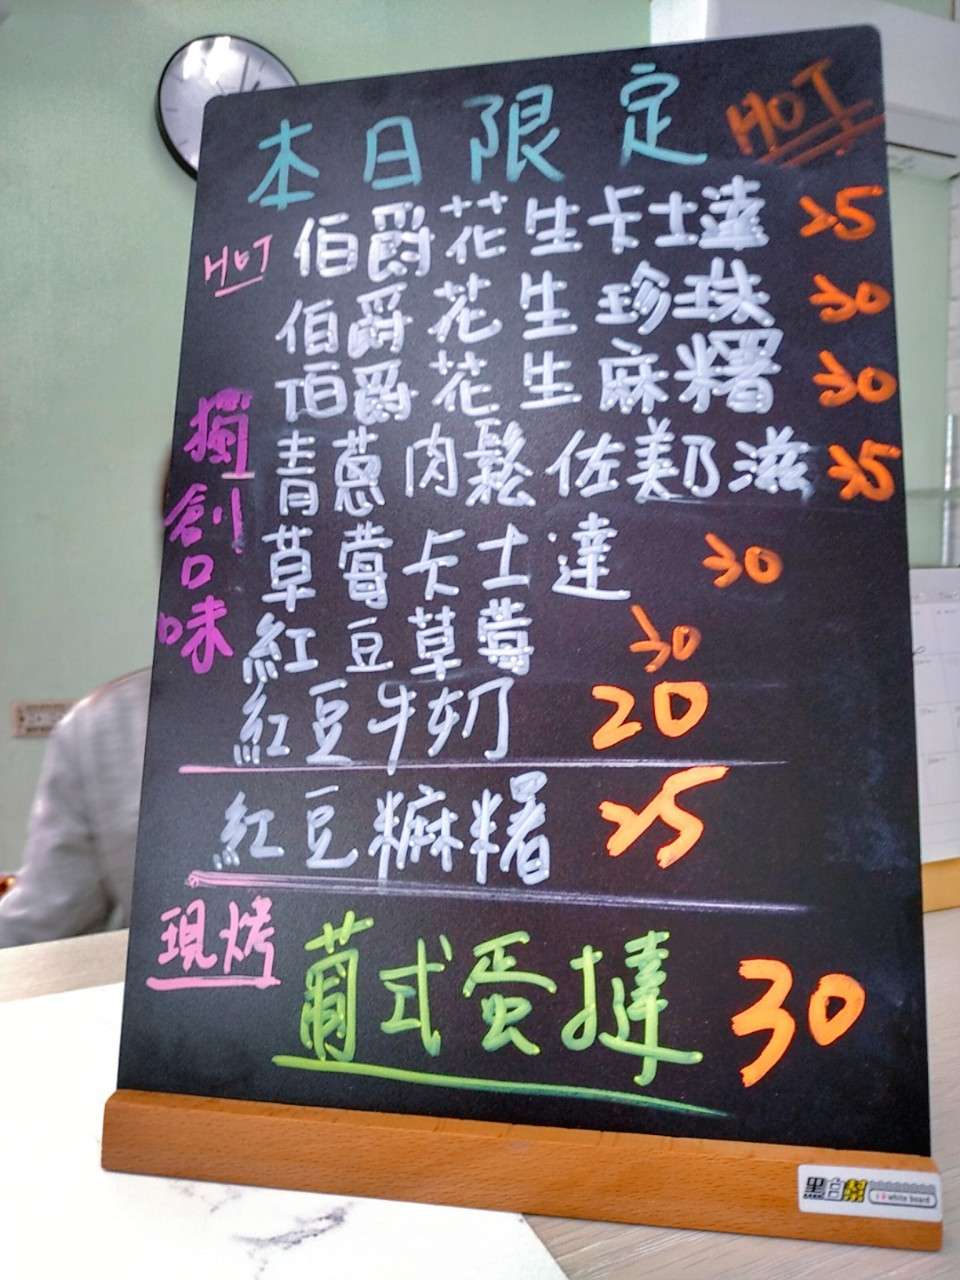 本日限定 HOT
HOT 伯爵花生卡士達 25
伯爵花生珍珠 30
伯爵花生麻糬 30
獨創口味
青蔥肉鬆佐美乃滋 35
草莓卡士達 30
紅豆草莓 30
紅豆牛奶 20
紅豆糜糬 25
現烤
葡式蛋撻 30
黑白幫
white board